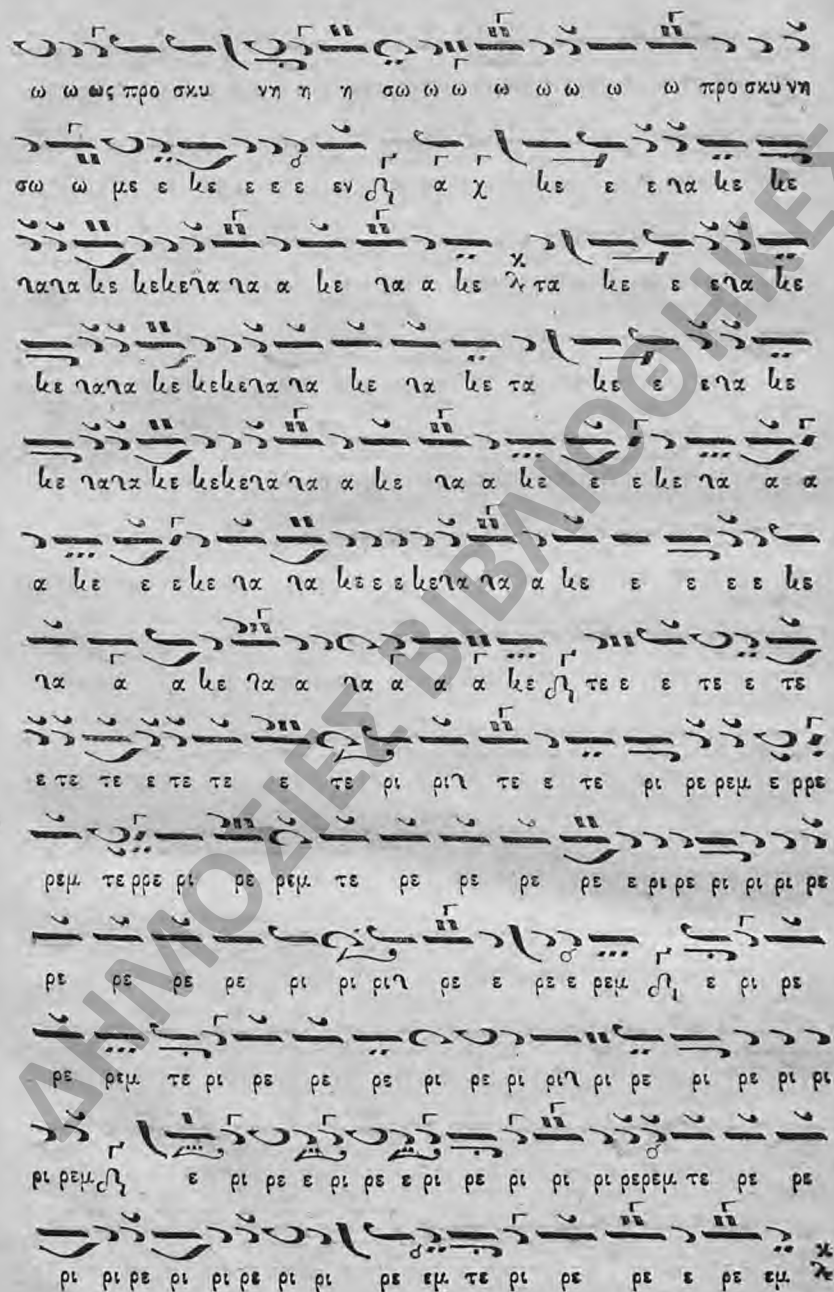 ω ω ως προ σκυ νη η η σω ω ω ω ω ω ω ω προ σκυ νη
σω ω με ε κε ε ε ε εν α χ κε ε ε να κε κε
νανα κε κεκενα να α κε να α κε τα κε ε ενα κε
κε νανα κε κεκενα να κε να κε τα κε ε ενα κε
κε νανα κε κεκενα να α κε να α κε ε ε κε να α α
α κε ε εκε να να κε ε ε κενα να α κε ε ε ε ε κε
να α α κε να α να α α α κε τε ε ε τε ε τε
ε τε τε ε τε τε ε τε ρι ριν τε ε τε ρι ρε ρεμ ε ρρε
ρεμ τε ρρε ρι ρε ρεμ τε ρε ρε ρε ρε ε ρι ρε ρι ρι ρι ρε
ρε ρε ρε ρε ρι ρι ριν ρε ε ρε ε ρεμ ε ρι ρε
ρε ρεμ τε ρι ρε ρε ρε ρι ρε ρι ριν ρι ρε ρι ρε ρι ρι
ρι ρεμ ε ρι ρε ε ρι ρε ε ρι ρε ρι ρι ρι ρερεμ τε ρε ρε
ρι ρι ρε ρι ρι ρε ρι ρι ρε εμ τε ρι ρε ρε ε ρε εμ
ΔΗΜΟΣΙΕΣ ΒΙΒΛΙΟΘΗΚΕΣ